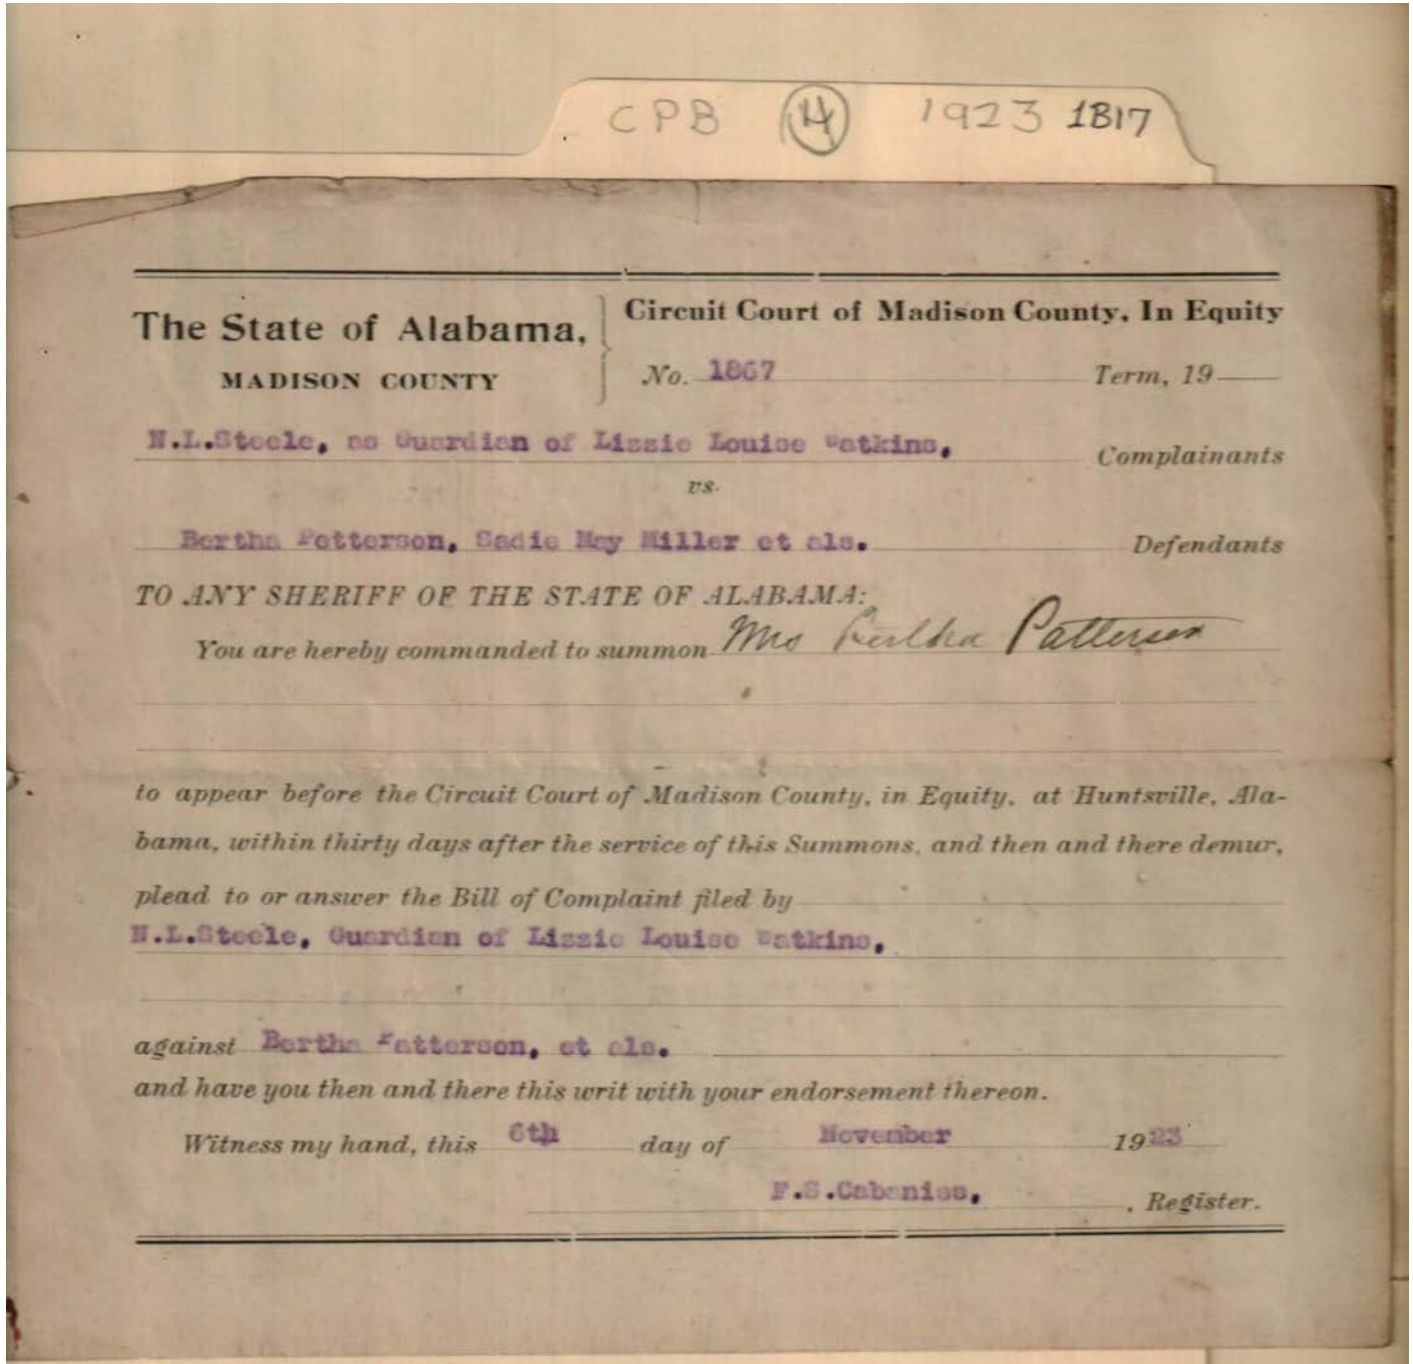 CPB 4 1923 1817
The State of Alabama,
MADISON COUNTY
Circuit Court of Madison County, In Equity
No. 1867 Term, 19
N.L.Steele, as Guardian of Lizzie Louise Watkins, Complainants
vs.
Bertha Patterson, Sadie May Miller et als. Defendants
TO ANY SHERIFF OF THE STATE OF ALABAMA:
You are hereby commanded to summon Mrs Bertha Patterson
to appear before the Circuit Court of Madison County, in Equity, at Huntsville, Ala-
bama, within thirty days after the service of this Summons, and then and there demur,
plead to or answer the Bill of Complaint filed by
N.L.Steele, Guardian of Lizzie Louise Watkins,
against Bertha Patterson, et als.
and have you then and there this writ with your endorsement thereon.
Witness my hand, this 6th day of November 1923
F.S.Cabaniss, , Register.